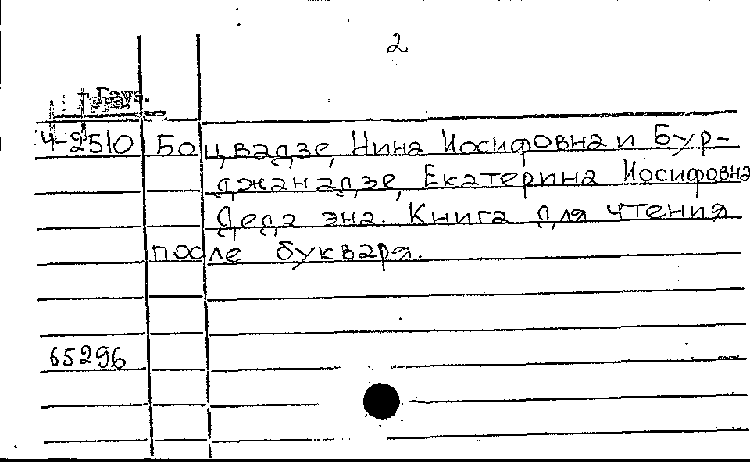 2
4-2510 Боцвадзе, Нина Иосифовна и Бур-
джанадзе, Екатерина Иосифовна
Деда эна. Книга для чтения
после букваря.
65296